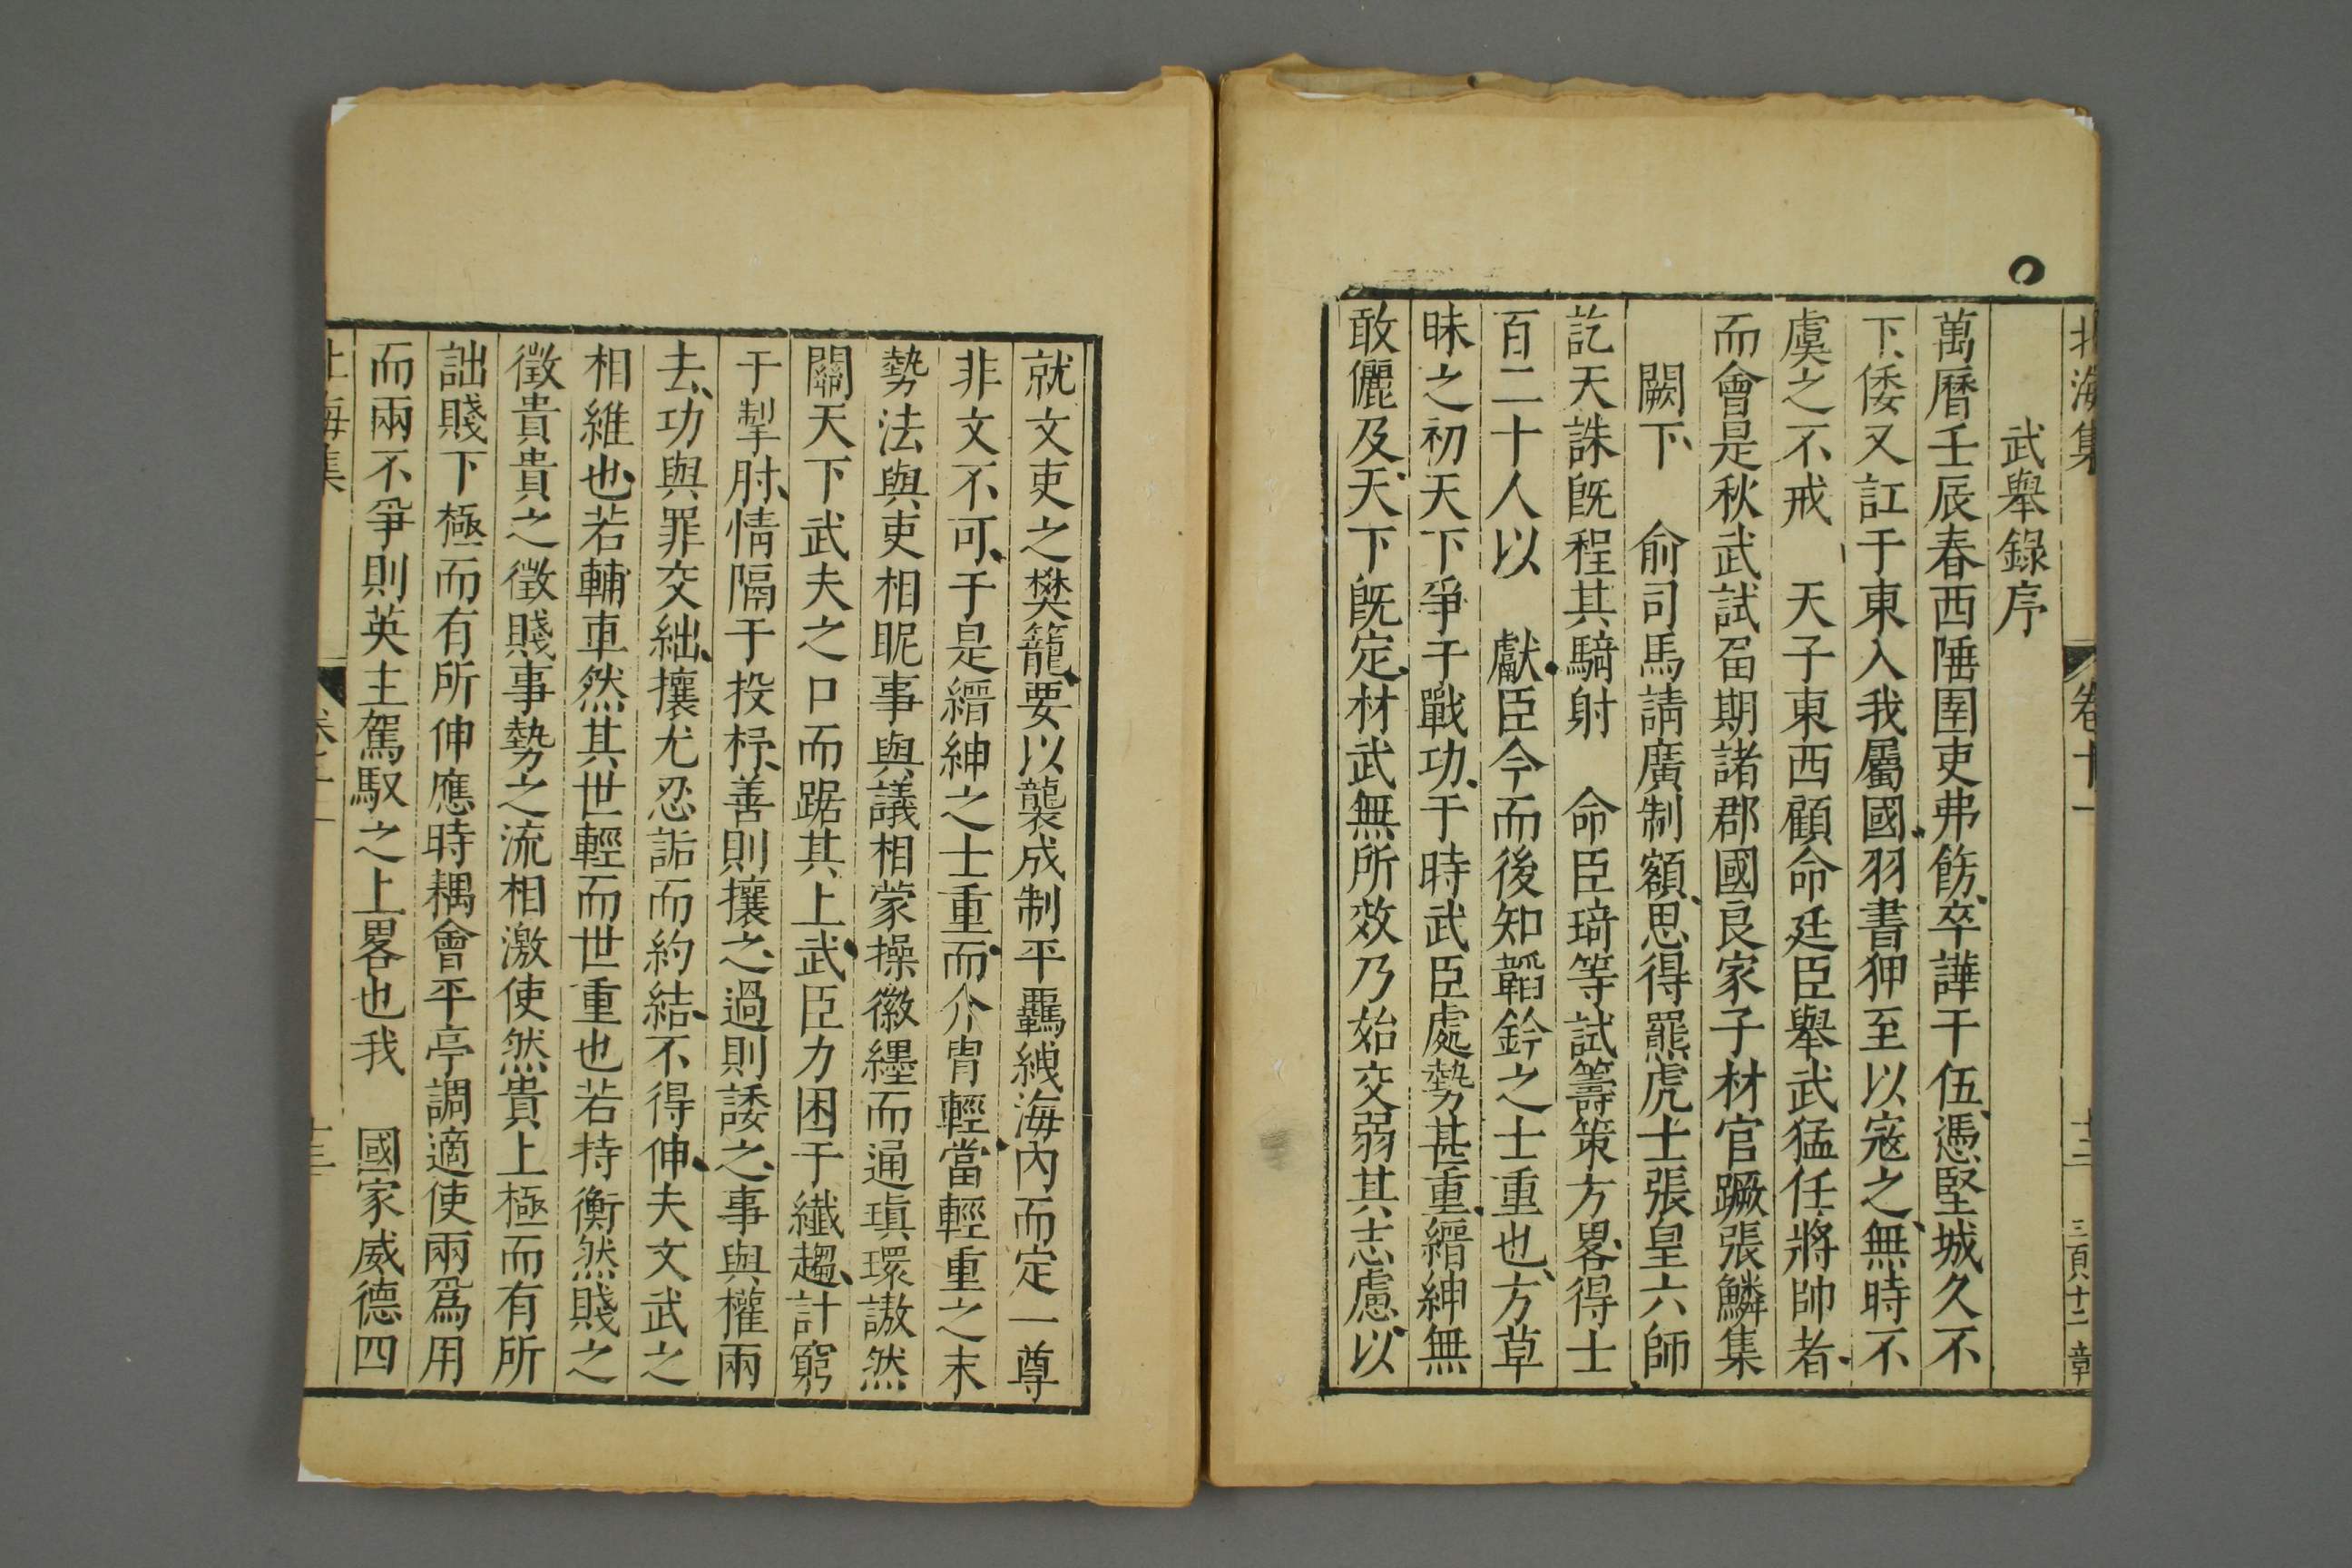 北海集 卷十一 十二 三百十二 章
武舉錄序
萬曆壬辰春西陲圉吏弗飭卒譁于伍憑堅城久不
下倭又訌于東入我屬國羽書狎至以寇之無時不
虞之不戒 天子東西顧命廷臣舉武猛任將帥者
而會是秋武試畱期諸郡國良家子材官蹶張鱗集
闕下 俞司馬請廣制額思得羆虎士張皇六師
訖天誅旣程其騎射 命臣琦等試籌策方畧得士
百二十人以 獻臣今而後知韜鈐之士重也方草
昧之初天下爭于戰功于時武臣處勢甚重縉紳無
敢儷及天下旣定材武無所效乃始交弱其志慮以
就文吏之樊籠要以襲成制平羈絏海內而定一尊
非文不可于是縉紳之士重而介冑輕當輕重之末
勢法與吏相昵事與議相蒙操徽纆而通瑱環謷然
關天下武夫之口而踞其上武臣力困于纖趨計窮
于掣肘情隔于投杼善則攘之過則諉之事與權兩
去功與罪交絀攘尤忍詬而約結不得伸夫文武之
相維也若輔車然其世輕而世重也若持衡然賤之
徵貴貴之徵賤事勢之流相激使然貴上極而有所
詘賤下極而有所伸應時耦會平亭調適使兩爲用
而兩不爭則英主駕馭之上畧也我 國家威德四
北海集 卷十一 十三